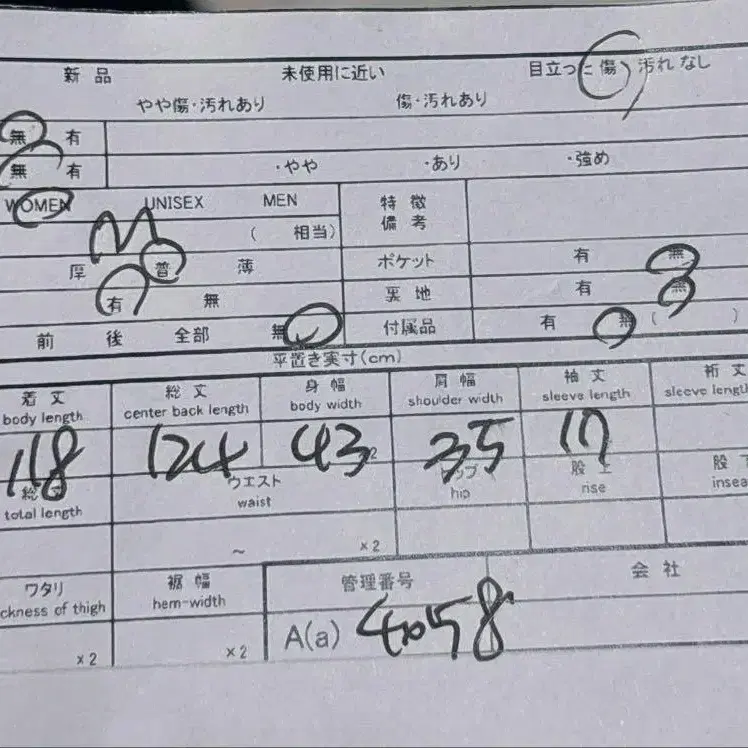 新品 未使用に近い 目立った傷 汚れなし
やや傷・汚れあり 傷・汚れあり
無 有
無 有 ・やや ・あり ・強め
WOMEN UNISEX MEN 特徴
備考
M ( 相当)
厚 普 薄 ポケット 有 無
有 無 裏地 有 無
前 後 全部 無 付属品 有 無 ( )
平置き実寸(cm)
着丈 総丈 身幅 肩幅 袖丈 裄丈
body length center back length body width shoulder width sleeve length sleeve length
118 124 43 35 17
ウエスト 股上 股
total length waist hip rise
~ ×2
ワタリ 裾幅 管理番号 会社
ckness of thigh hem-width
×2 ×2 A(a) 4058